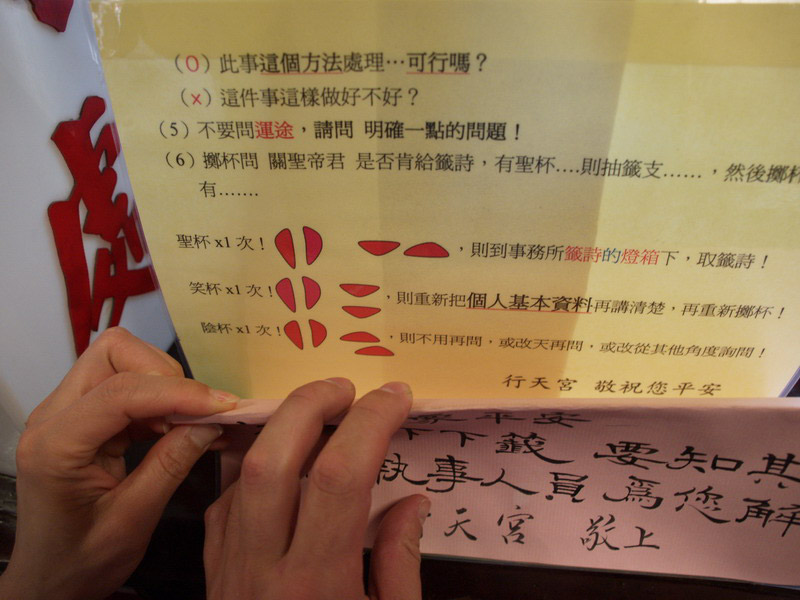 （O）此事這個方法處理…可行嗎？
（x）這件事這樣做好不好？
（5）不要問運途，請問 明確一點的問題！
（6）擲杯問 關聖帝君 是否肯給籤詩，有聖杯….則抽籤支……，然後擲杯
有…….
聖杯 x1 次！ ，則到事務所籤詩的燈箱下，取籤詩！
笑杯 x1 次！ ，則重新把個人基本資料再講清楚，再重新擲杯！
陰杯 x1 次！ ，則不用再問，或改天再問，或改從其他角度詢問！
行天宮 敬祝您平安
平安
下下籤 要知其
執事人員為您解
天宮 敬上
處